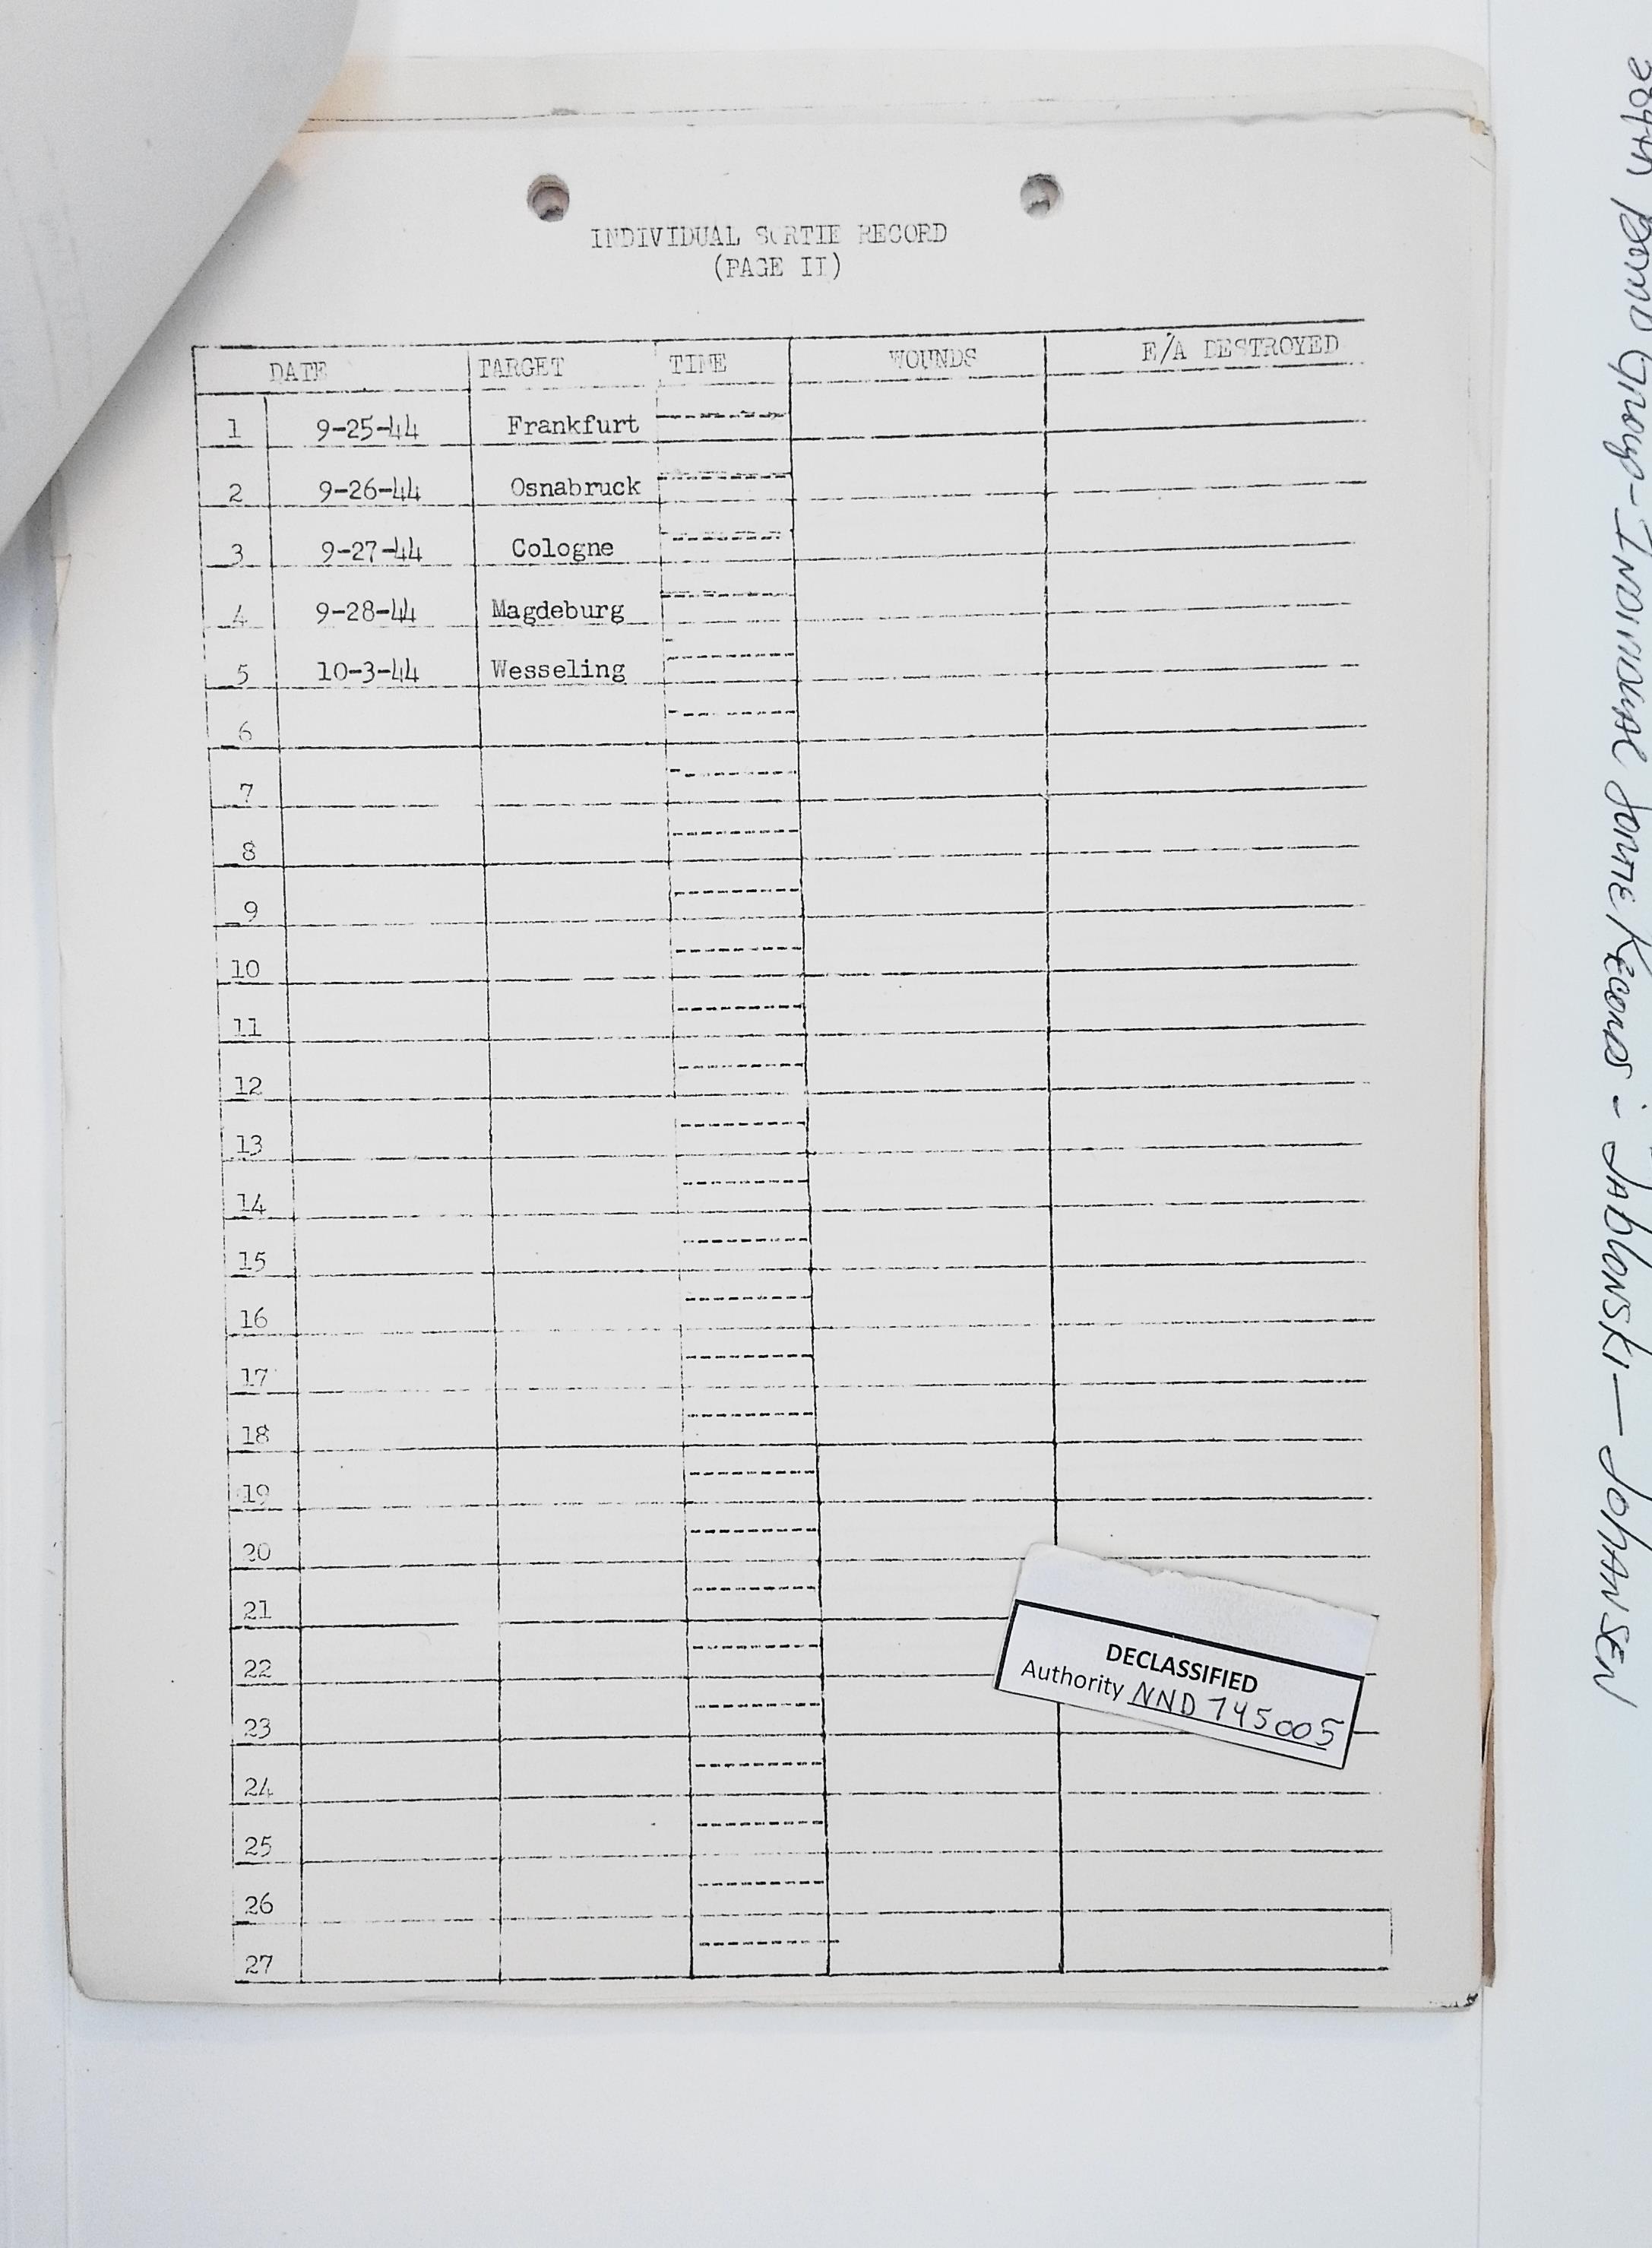 INDIVIDUAL SORTIE RECORD
(PAGE II)
DATE TARGET TIME WOUNDS E/A DESTROYED
1 9-25-44 Frankfurt
2 9-26-44 Osnabruck
3 9-27-44 Cologne
4 9-28-44 Magdeburg
5 10-3-44 Wesseling
6
7
8
9
10
11
12
13
14
15
16
17
18
19
20
21
22
23
24
25
26
27
DECLASSIFIED
Authority NND 745005
Bomb Group - Individual Sortie Records - Jablonski — Johansen